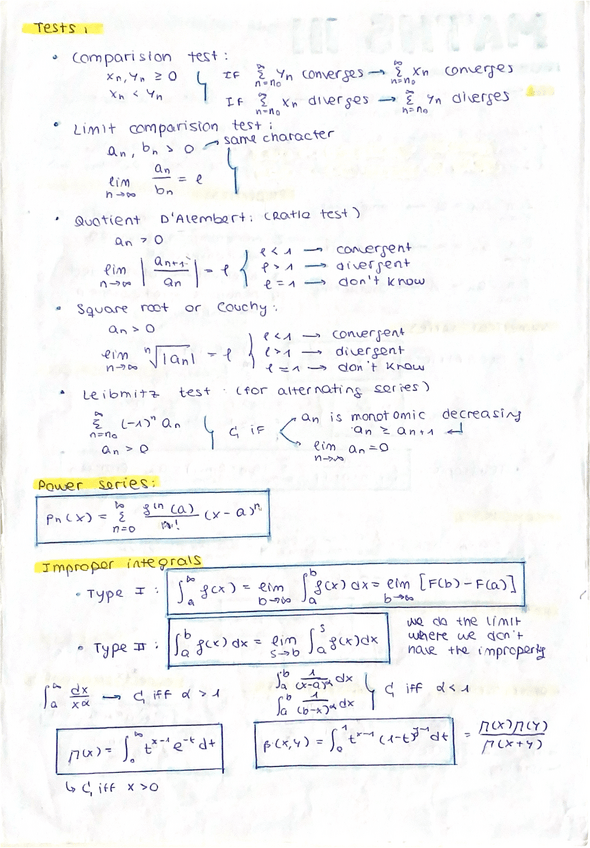 Tests:
• Comparision test:
xn, yn ≥ 0
xn < yn
IF ∑_{n=n0}^{∞} yn converges → ∑_{n=n0}^{∞} xn converges
IF ∑_{n=n0}^{∞} xn diverges → ∑_{n=n0}^{∞} yn diverges
• Limit comparision test:
an, bn > 0 → same character
lim_{n→∞} an/bn = l
• Quotient D'Alembert: (Ratio test)
an > 0
lim_{n→∞} |an+1/an| = l
l < 1 → convergent
l > 1 → divergent
l = 1 → don't know
• Square root or Couchy:
an > 0
lim_{n→∞} ⁿ√|an| = l
l < 1 → convergent
l > 1 → divergent
l = 1 → don't know
• Leibmitz test (for alternating series)
∑_{n=n0}^{∞} (-1)^n an
an > 0
C, if
an is monotomic decreasing
an ≥ an+1
lim_{n→∞} an = 0
Power series:
Pn(x) = ∑_{n=0}^{∞} f^{(n)}(a)/n! (x-a)^n
Improper integrals
• Type I: ∫_a^∞ f(x) = lim_{b→∞} ∫_a^b f(x) dx = lim_{b→∞} [F(b) - F(a)]
• Type II: ∫_a^b f(x) dx = lim_{s→b} ∫_a^s f(x) dx
we do the limit
where we don't
have the improperty
∫_a^∞ dx/x^α → C, iff α > 1
∫_a^b 1/(x-a)^α dx
∫_a^b 1/(b-x)^α dx
C, iff α < 1
Γ(x) = ∫_0^∞ t^{x-1} e^{-t} dt
β(x,y) = ∫_0^1 t^{x-1} (1-t)^{y-1} dt = Γ(x)Γ(y)/Γ(x+y)
↳ C, iff x > 0